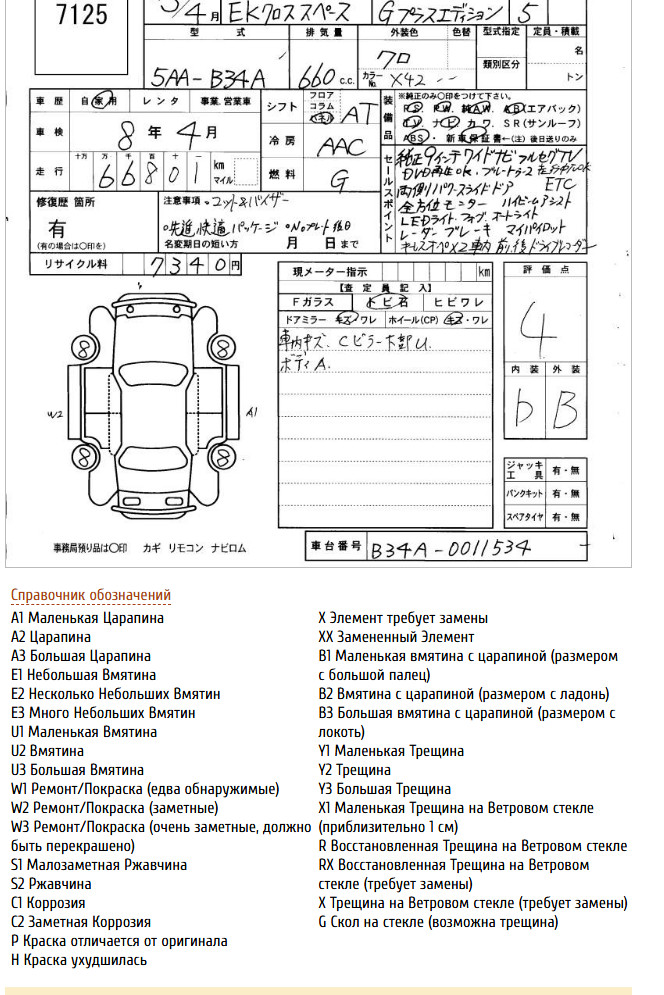 7125
5/4月 EKクロススペース Gプラスエディション 5
型 式 排気量 外装色 色替 型式指定 定員・積載
5AA-B34A 660 c.c. クロ カラーNo. X42 類別区分 名 トン
車歴 自家用 レンタ 事業.営業車 シフト フロア コラム パネル AT 装備品 ※純正のみ○印をつけて下さい。
PS. PW. 純AW. AB(エアバック)
TV ナビ カワ. SR(サンルーフ)
ABS・ 新車保証書←(注) 後日送りのみ
車検 8年4月 冷房 AAC
走行 十万 万 千 百 十 一 66801 km マイル 燃料 G
セールスポイント
純正9インチワイドナビ フルセグTV
DVD再生OK. ブルートゥース
両側パワースライドドア ETC
全方位モニター ハイビームアシスト
LEDライト.フォグ.オートライト
レーダーブレーキ マイパイロット
キーレスオペX2 車内 前.後ドライブレコーダー
修復歴 箇所 有 (有の場合は○印を)
注意事項・マット&バイザー
○先進快適パッケージ ○Noプレート後日
名変期日の短い方 月 日まで
リサイクル料 7340円
現メーター指示 km
【査 定 員 記 入】
Fガラス トビ石 ヒビワレ
ドアミラー キズ・ワレ ホイール(CP) キズ・ワレ
車内キズ. Cピラー下部U.
ボディA.
評価点
4
内装 外装
b B
8 8
W2 A1
8 8
ジャッキ 工具 有・無
パンクキット 有・無
スペアタイヤ 有・無
事務局預り品は○印 カギ リモコン ナビロム
車台番号 B34A-0011534
Справочник обозначений
A1 Маленькая Царапина
A2 Царапина
A3 Большая Царапина
E1 Небольшая Вмятина
E2 Несколько Небольших Вмятин
E3 Много Небольших Вмятин
U1 Маленькая Вмятина
U2 Вмятина
U3 Большая Вмятина
W1 Ремонт/Покраска (едва обнаружимые)
W2 Ремонт/Покраска (заметные)
W3 Ремонт/Покраска (очень заметные, должно
быть перекрашено)
S1 Малозаметная Ржавчина
S2 Ржавчина
C1 Коррозия
C2 Заметная Коррозия
P Краска отличается от оригинала
H Краска ухудшилась
X Элемент требует замены
XX Замененный Элемент
B1 Маленькая вмятина с царапиной (размером
с большой палец)
B2 Вмятина с царапиной (размером с ладонь)
B3 Большая вмятина с царапиной (размером с
локоть)
Y1 Маленькая Трещина
Y2 Трещина
Y3 Большая Трещина
X1 Маленькая Трещина на Ветровом стекле
(приблизительно 1 см)
R Восстановленная Трещина на Ветровом стекле
RX Восстановленная Трещина на Ветровом
стекле (требует замены)
X Трещина на Ветровом стекле (требует замены)
G Скол на стекле (возможна трещина)